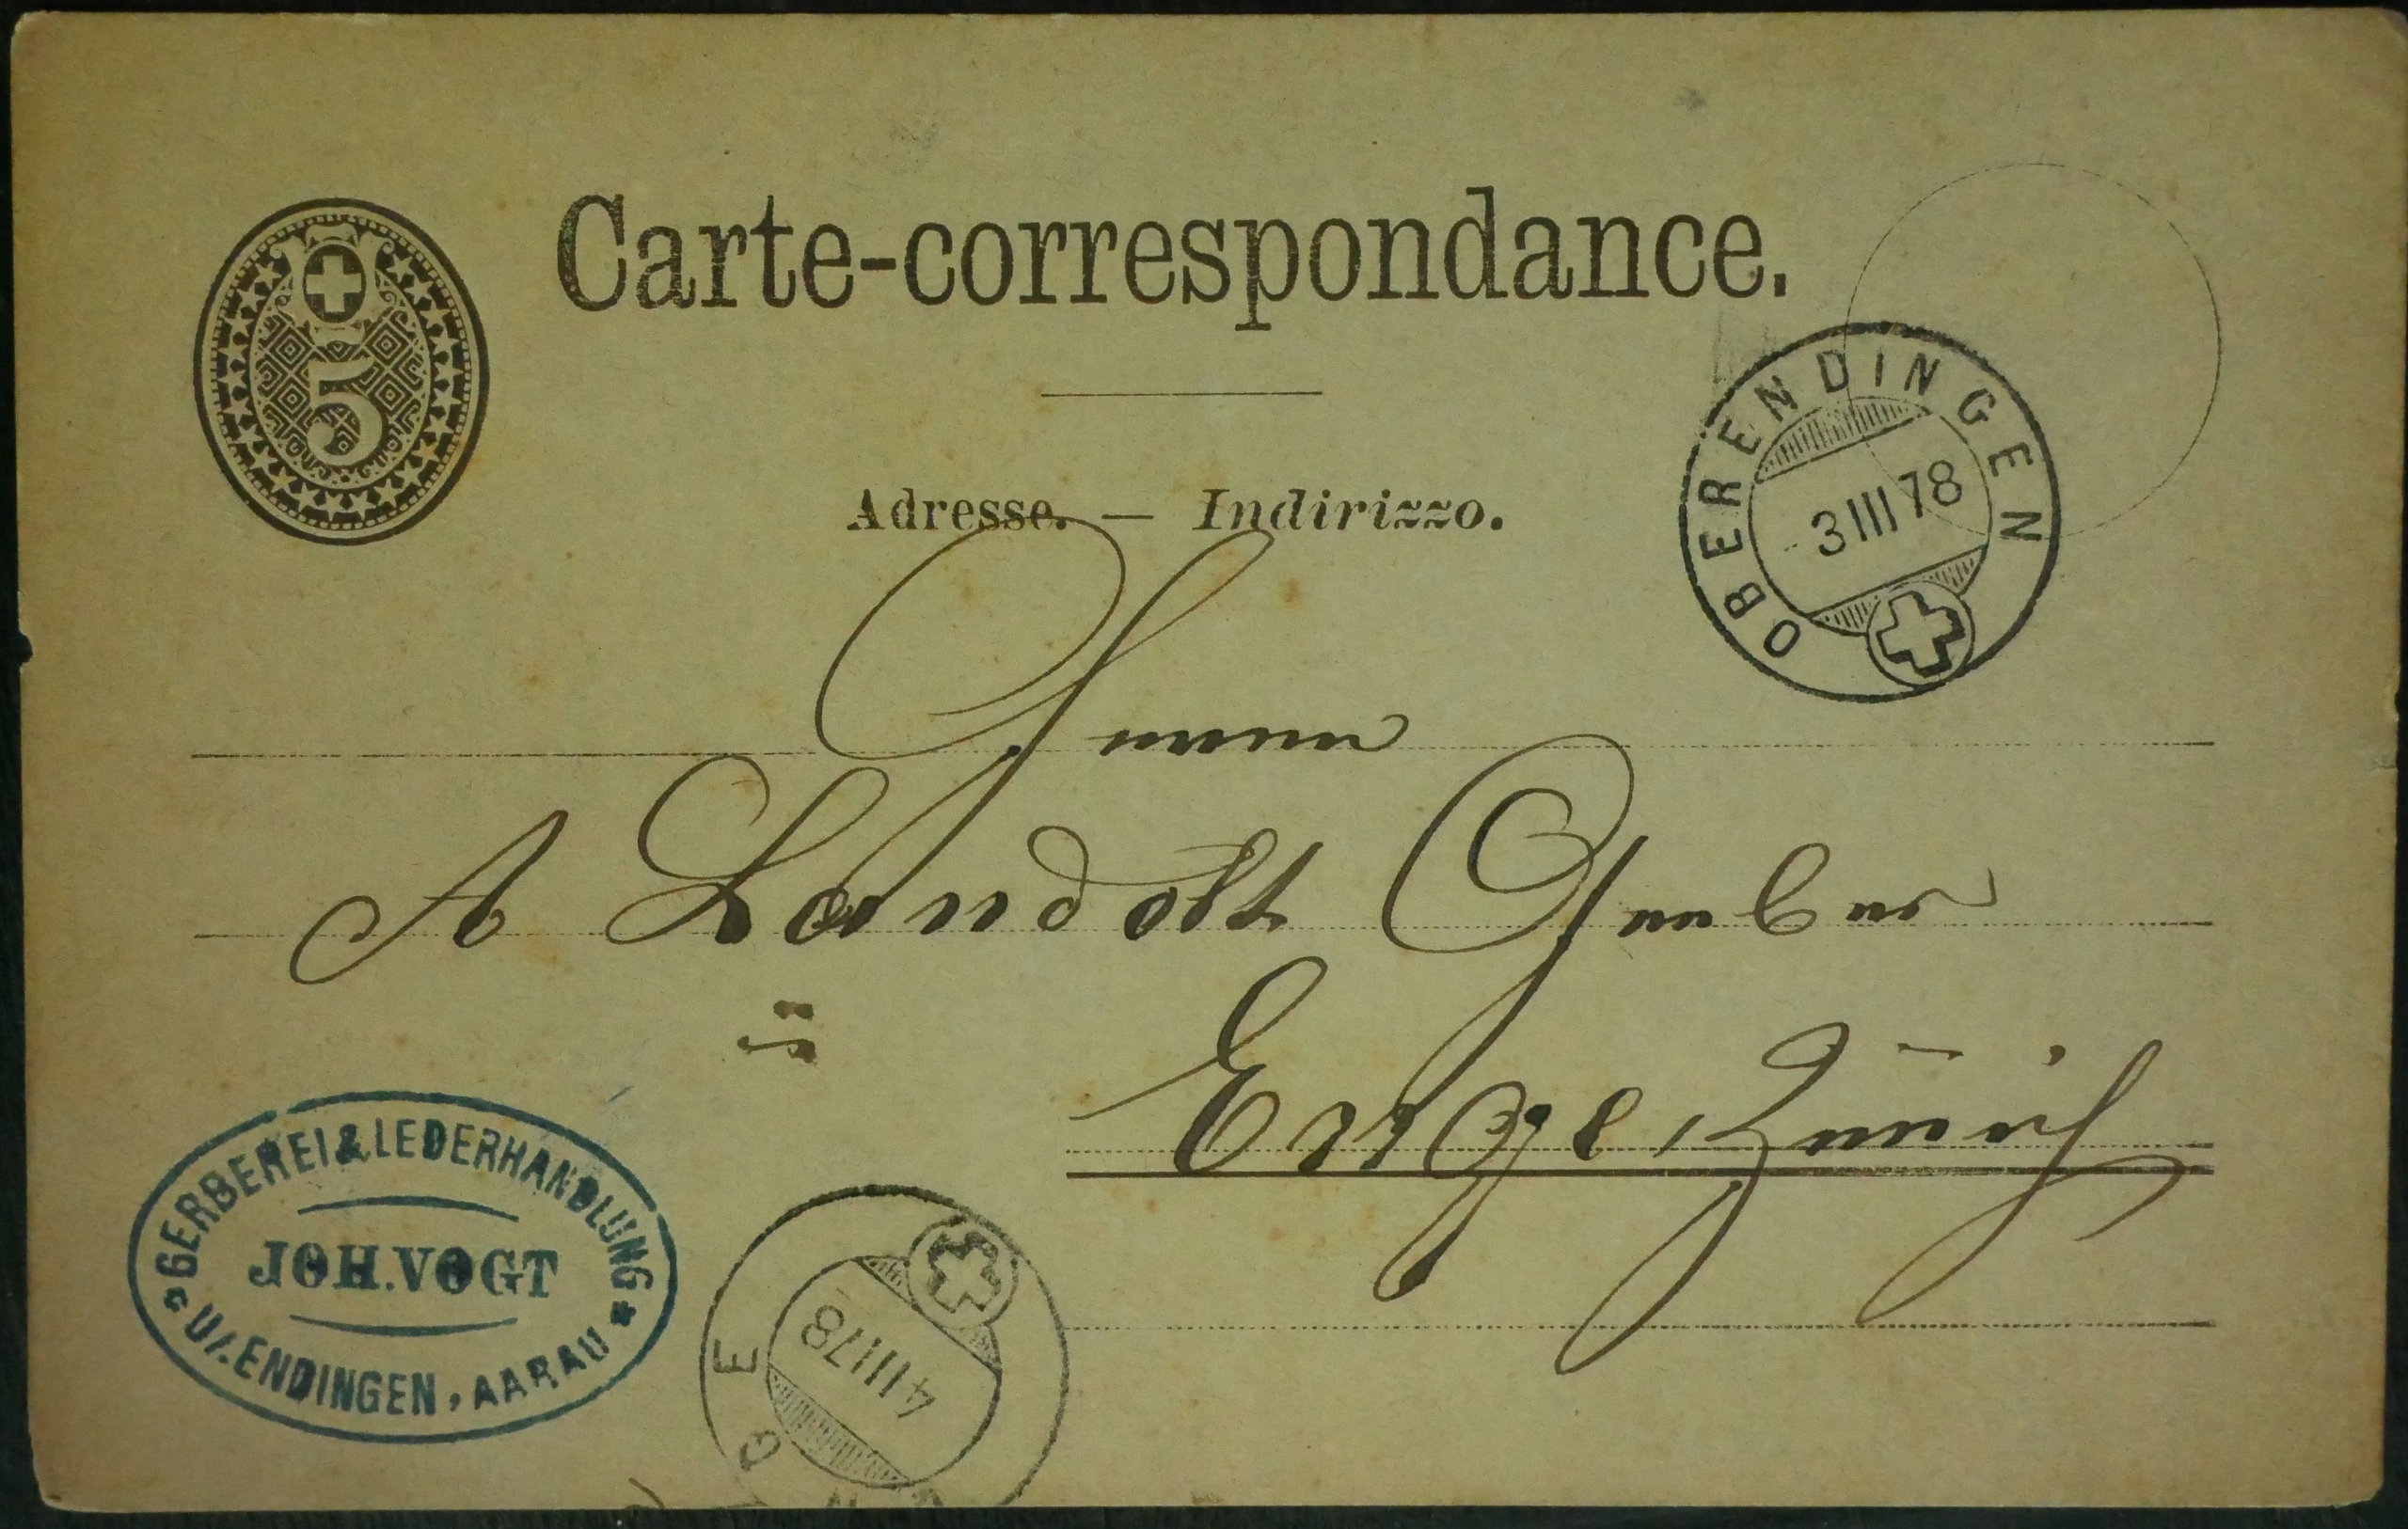 5
Carte-correspondance.
Adresse. — Indirizzo.
OBERENDINGEN
3 III 78
Herrn
A Landolt Gerber
in
Enge, Zürich
GERBEREI & LEDERHANDLUNG
JOH. VOGT
U/. ENDINGEN, AARAU
ENGE
4 III 78